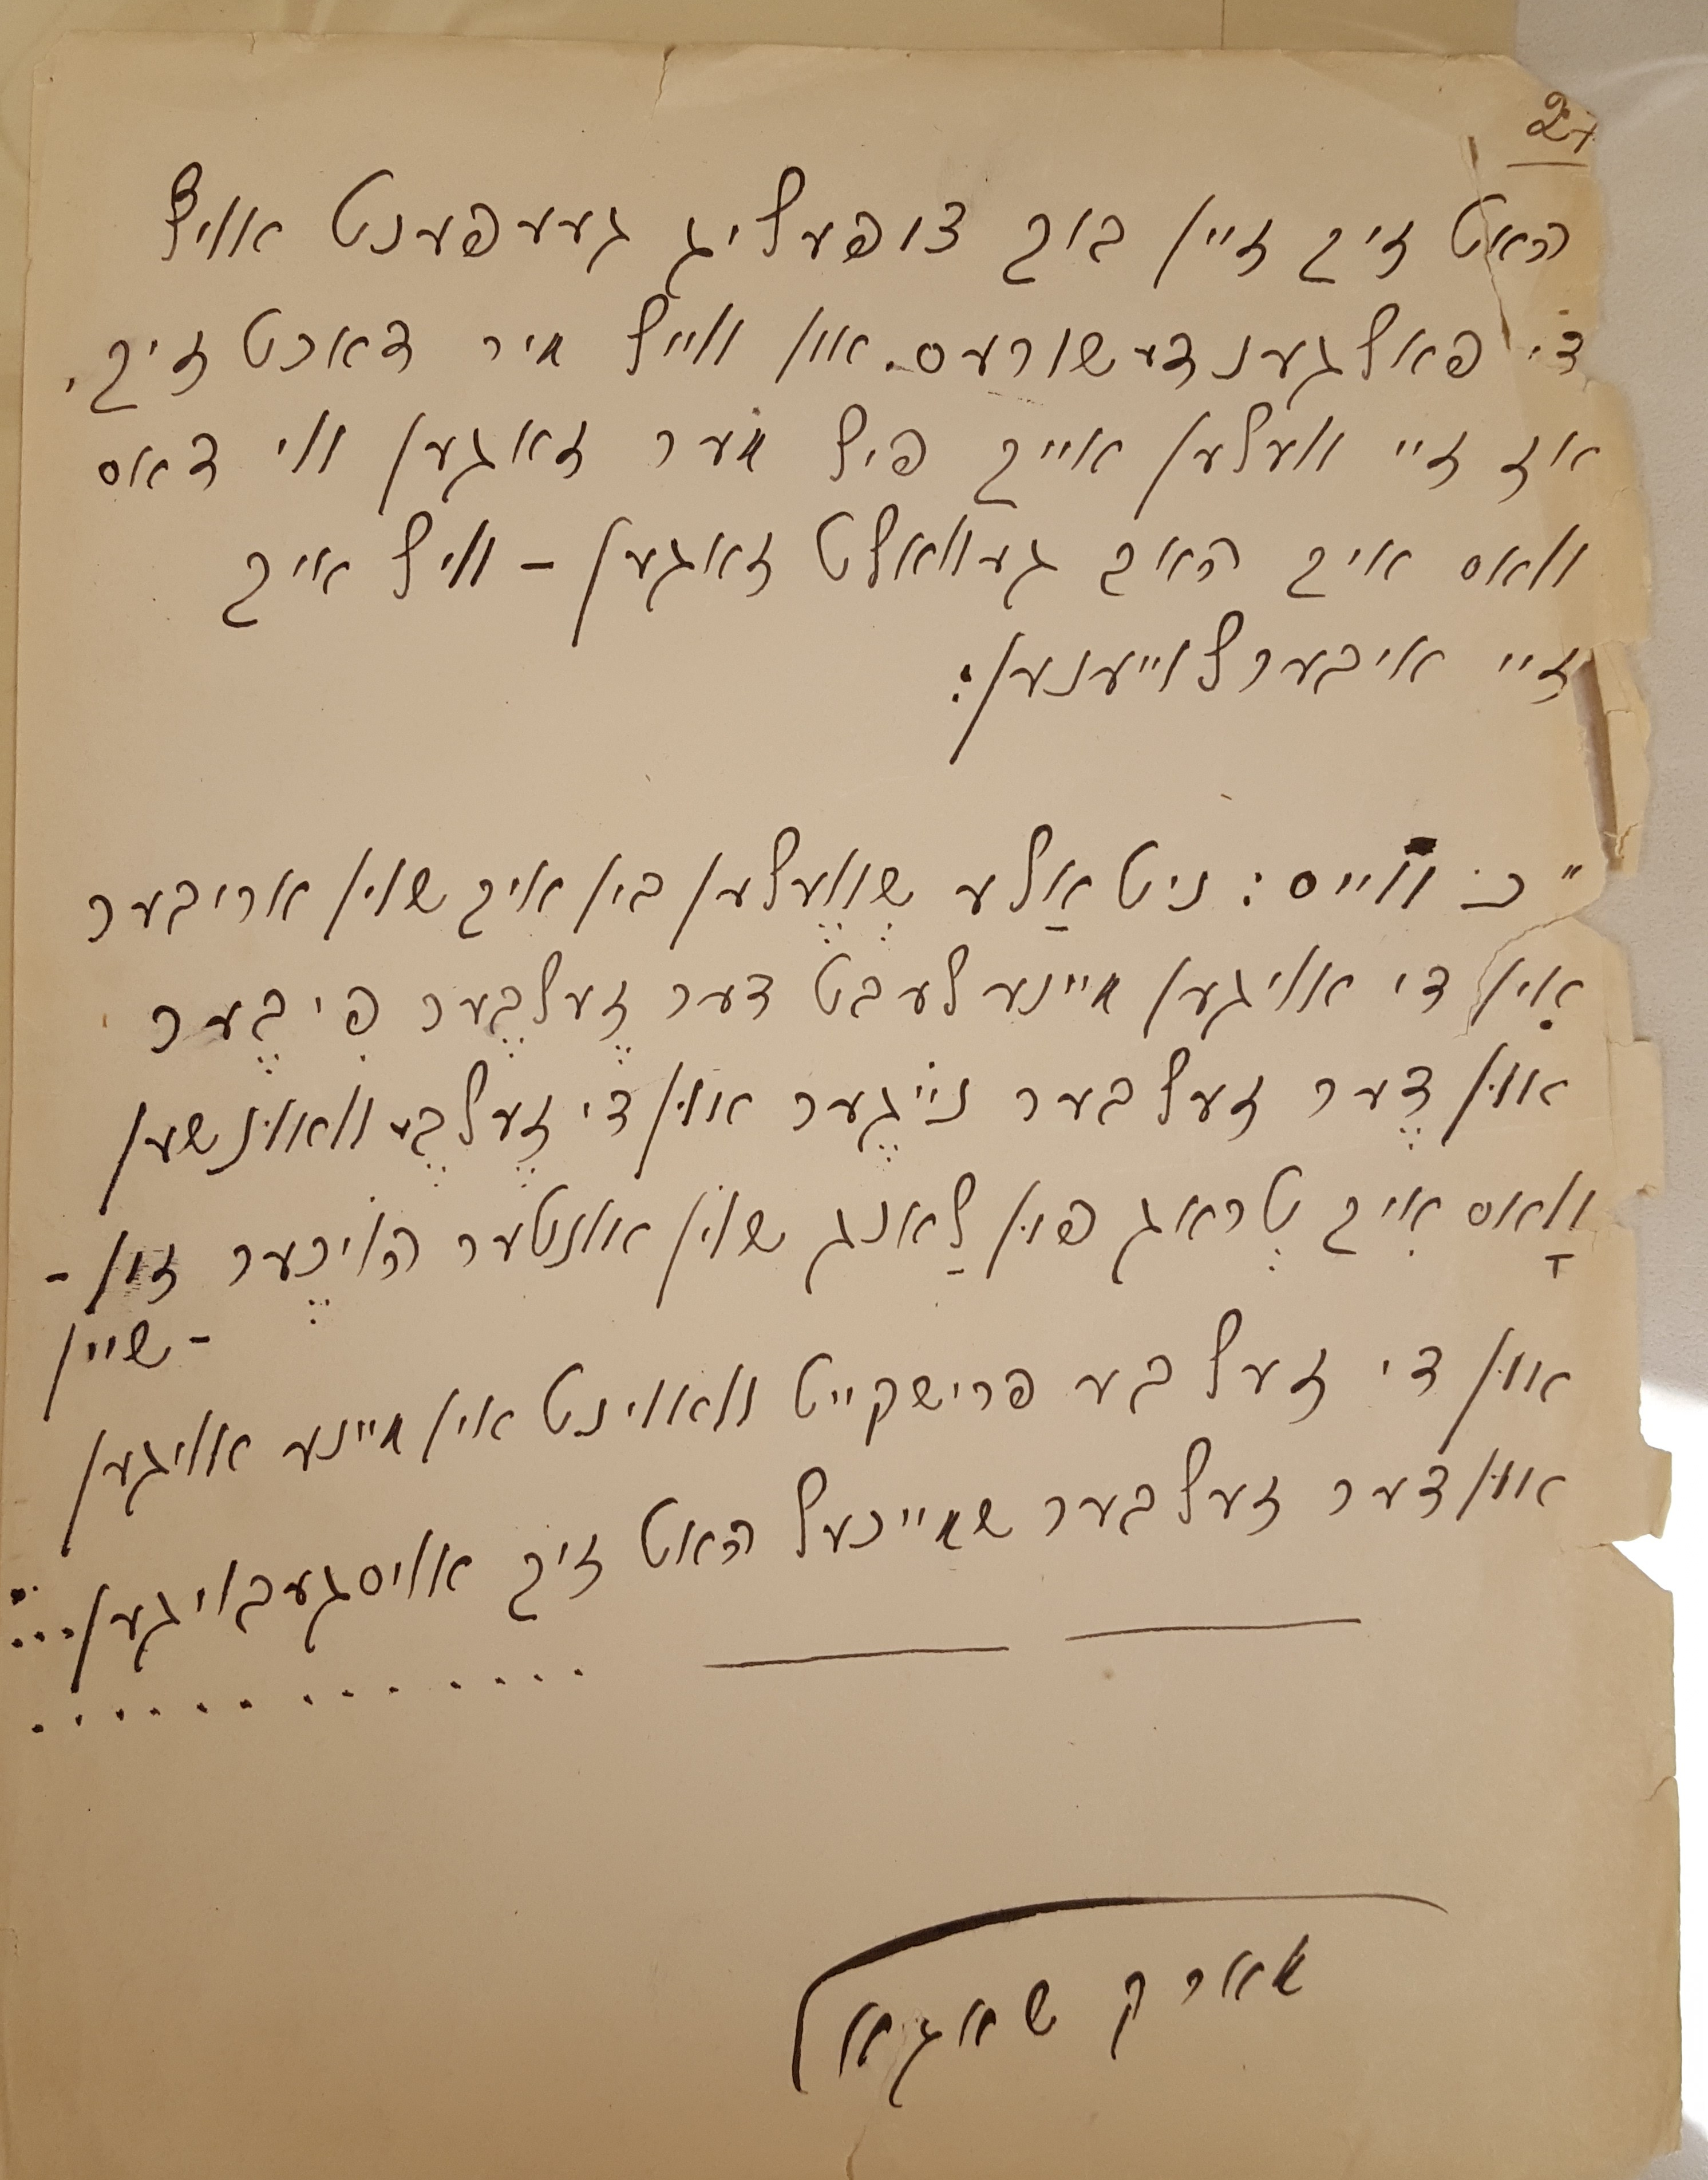 27
האט זיך זיין בוך צופעליג געעפענט אויף
די פאלגענדע שורעס. און ווייל מיר דאכט זיך,
אז זיי וועלען אייך פיל מער זאגען ווי דאס
וואס איך האב געוואלט זאגען – וויל איך
זיי איבערלייענען:
"כ'ווייס: ניט אַלע שְוֶועלען בין איך שוין אריבער
אִין די אויגען מיינע לעבט דער זֶעלבֶער פִיבֶער
און דֶער זעלבער נייגֶער און די זֶעלבֶע וואונשען
וָואס אִיך טְראג פון לַאנג שוין אונטער הויכֶער זון-
-שיין
און די זעלבע פרישקייט וואוינט אין מיינע אויגען
און דער זעלבער שמייכעל האט זיך אויסגעבויגען...
. . . . . . . . . . . . .
מארק שאגאל